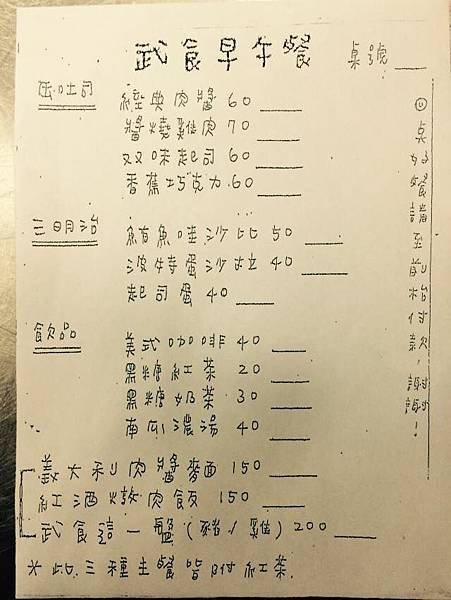 武食早午餐 桌號
压吐司
經典肉醬 60
醬燒雞肉 70
双味起司 60
香蕉巧克力 60
三明治
鮪魚哇沙比 50
波特蛋沙拉 40
起司蛋 40
飲品
美式咖啡 40
黑糖紅茶 20
黑糖奶茶 30
南瓜濃湯 40
義大利肉醬麵 150
紅酒燉肉飯 150
武食這一盤（豬/雞）200
※此三種主餐皆附紅茶
點好餐請至前檯付款，謝謝！